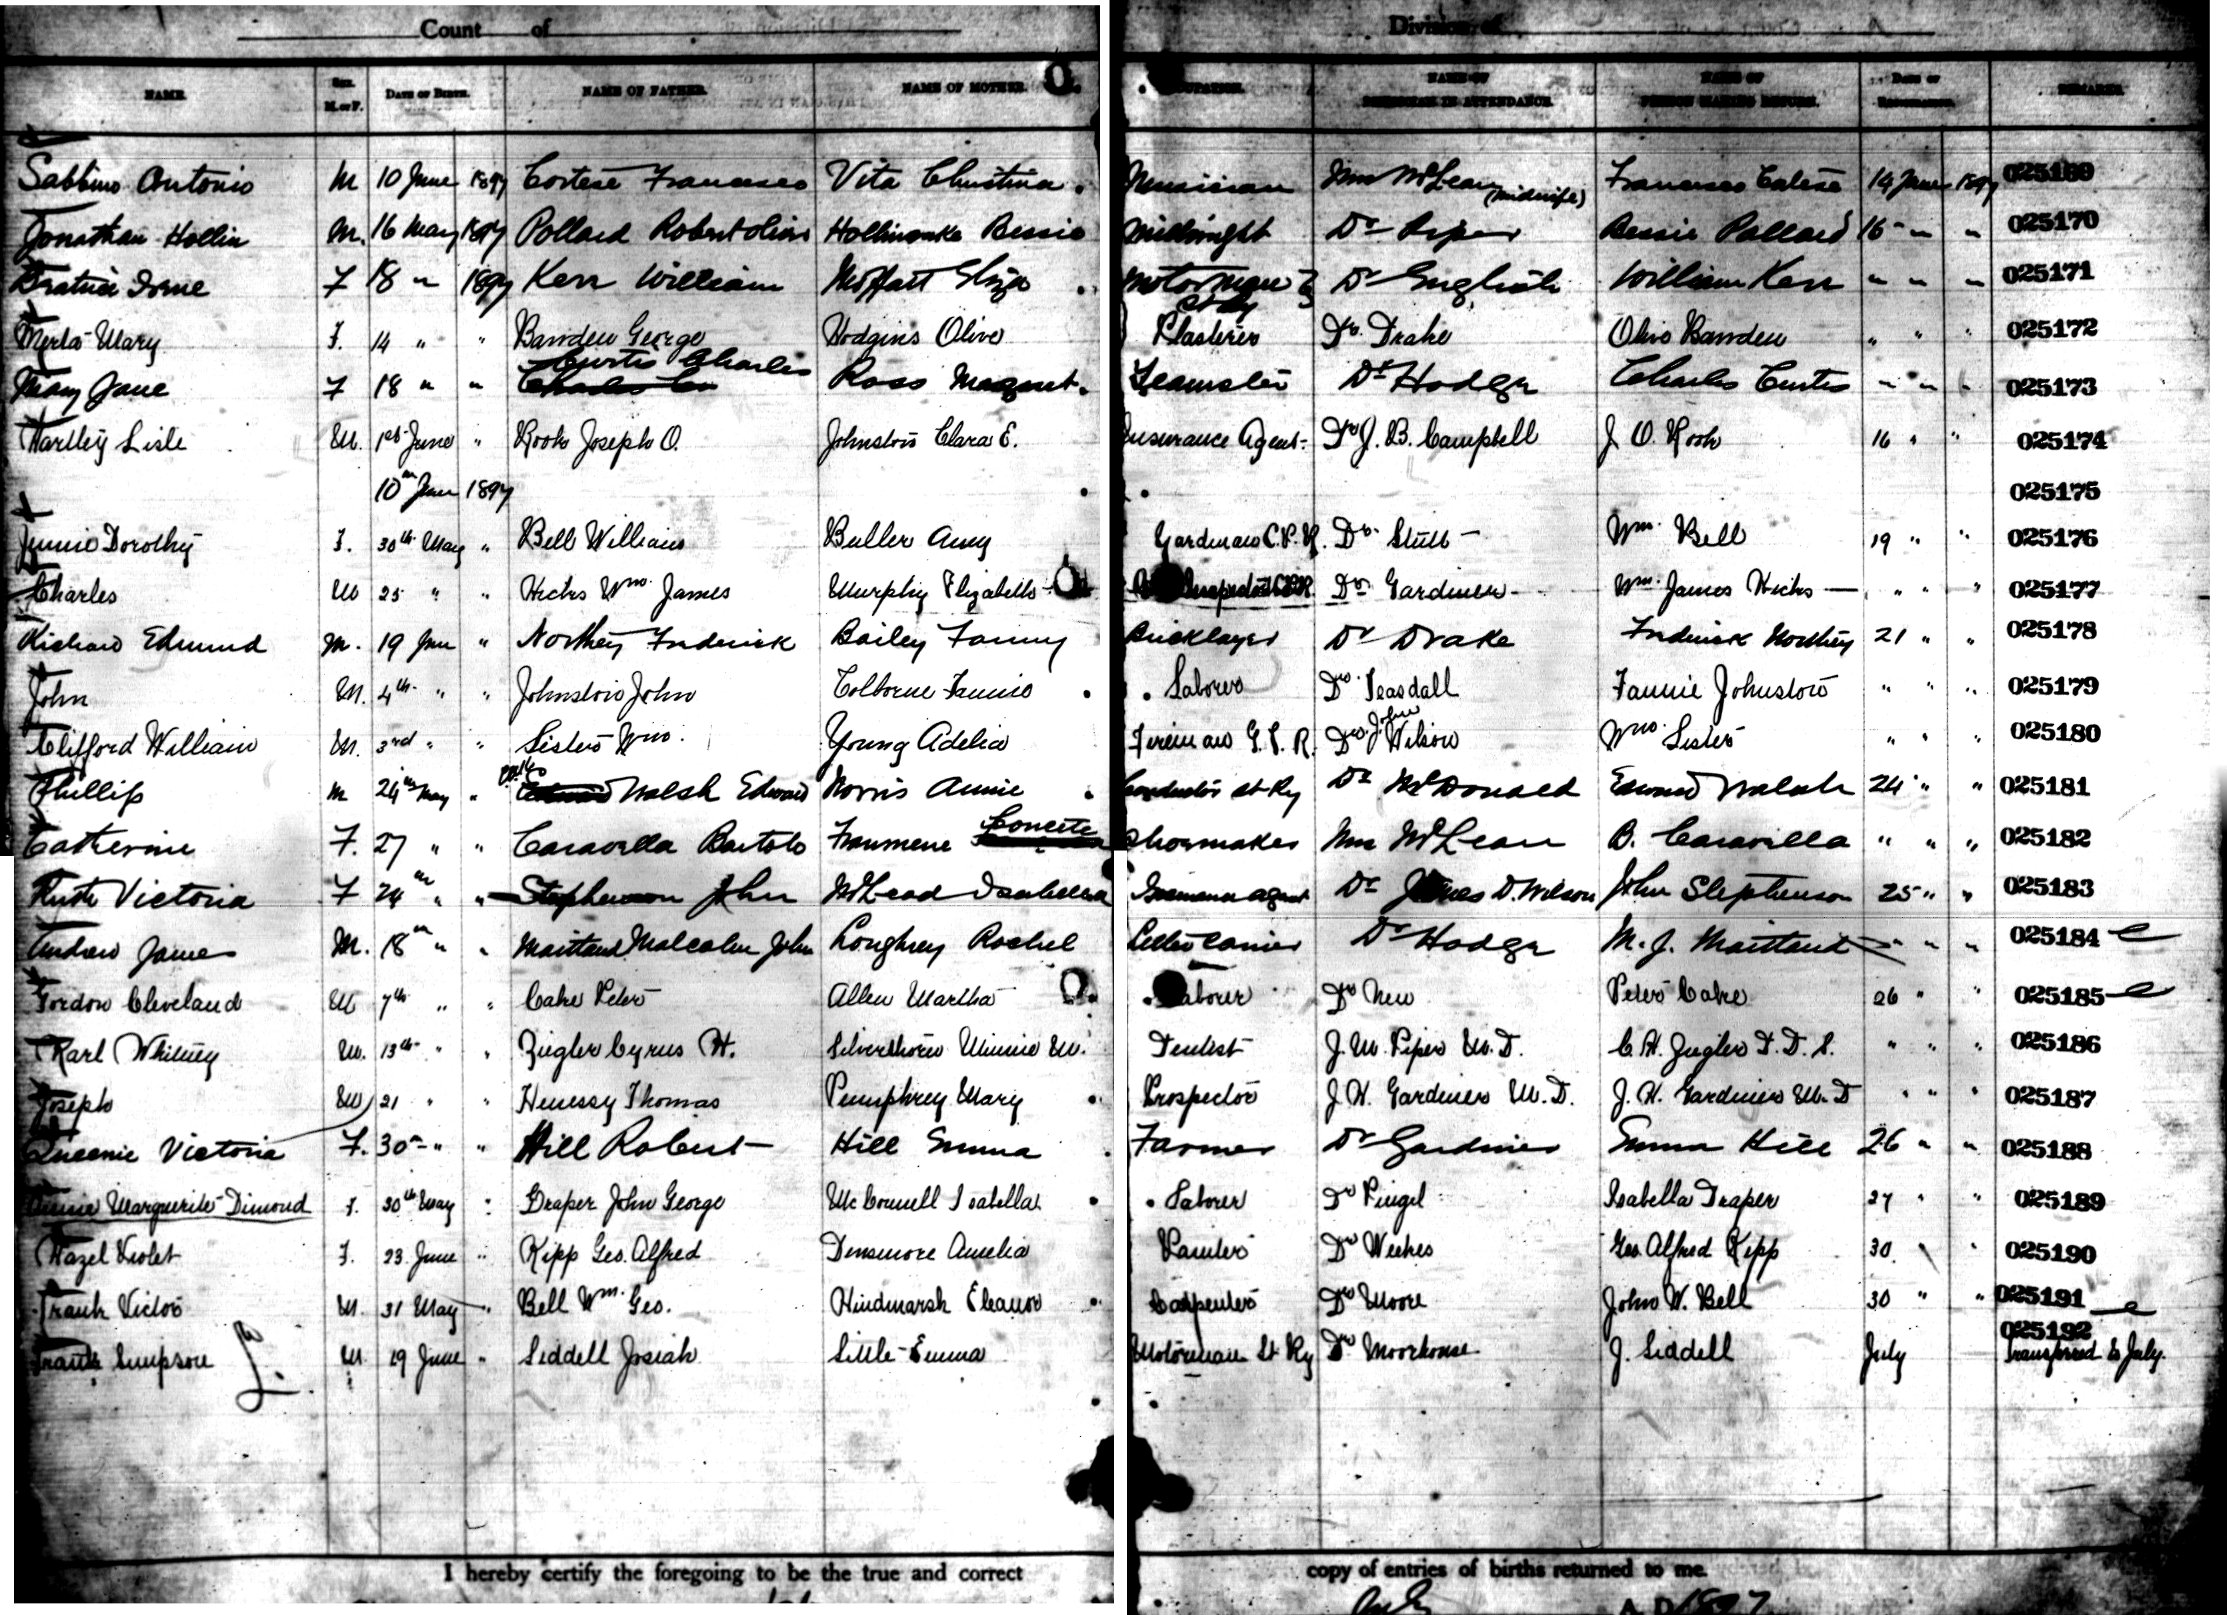 Count of Division of
NAME. SEX. M. or F. DATE OF BIRTH. NAME OF FATHER. NAME OF MOTHER. OCCUPATION. NAME OF PHYSICIAN IN ATTENDANCE. NAME OF PERSON MAKING RETURN. DATE OF REGISTRATION. REMARKS.
Sabbino Antonio M 10 June 1897 Cortese Francesco Vita Christina Musician Mrs McLean (midwife) Francesco 14 June 1897 025169
Jonathan Hollin M. 16 May 1897 Pollard Robert Bessie Millwright Dr Piper Bessie Pollard 15 " " 025170
Beatrice Irene F 18 " 1897 Kerr William Moffatt Eliza Dr English William Kerr " " " 025171
Merta Mary F. 14 " " Bawden George Hodgins Olive Plasterer Dr. Drake Olive Bawden " " " 025172
Mary Jane F 18 " " Curtis Charles Ross Margaret Teamster Dr Hodge Charles Curtis " " " 025173
Hartley Lisle M. 1st June " Rook Joseph O. Johnston Clara E. Insurance Agent Dr J. B. Campbell J O. Rook 16 " " 025174
10th June 1897 025175
Dorothy F. 30th May " Bell William Buller Amy Yardman C.P.R. Dr. Wm. Bell 19 " " 025176
Charles M 25 " " Hicks Wm. James Murphy Elizabeth C.P.R. Dr. Gardiner Wm. James Hicks " " " 025177
Richard Edmund M. 19 June " Northey Frederick Bailey Fanny Bricklayer Dr Drake Frederick Northey 21 " " 025178
John M. 4th " " Johnston John Colborne Fannie Laborer Dr. Teasdall Fannie Johnston " " " 025179
Clifford William M. 3rd " " Wm. Young Adelia Fireman G.T.R. Dr. John Wilson Wm " " " 025180
Phillip M 24th May " Walsh Edward Norris Annie Conductor St Ry Dr McDonald Edward Walsh 24 " " 025181
Catherine F. 27 " " Caravella Bartolo Concete Shoemaker Mrs McLean B. Caravella " " " 025182
Ruth Victoria F 24th " " Stephenson John McLeod Isabella Insurance agent Dr James D. Wilson John Stephenson 25 " " 025183
Andrew James M. 18th " " Maitland Malcolm John Loughrey Rachel Letter Carrier Dr Hodge M. J. Maitland " " " 025184
Gordon Cleveland M 7th " " Cake Peter Allen Martha Laborer Dr New Peter Cake 26 " " 025185
Karl Whitney M. 13th " " Ziegler Cyrus H. Silverthorn Minnie M. Dentist J. M. Piper M.D. C. H. Ziegler D.D.S. " " " 025186
Joseph M 21 " " Henessy Thomas Pumphrey Mary Prospector J. H. Gardiner M.D. J. H. Gardiner M.D " " " 025187
Queenie Victoria F. 30 " " Hill Robert Hill Emma Farmer Dr Gardiner Emma Hill 26 " " 025188
Annie Marguerite Dimond F. 30th May " Draper John George McConnell Isabella Laborer Dr Pingel Isabella Draper 27 " " 025189
Hazel Violet F. 23 June " Kipp Geo. Alfred Densmore Amelia Painter Dr Weekes Geo. Alfred Kipp 30 " " 025190
Frank Victor M. 31 May " Bell Wm. Geo. Hindmarsh Eleanor Carpenter Dr Moore John W. Bell 30 " " 025191
Frank Simpson M. 19 June " Siddell Josiah Little Emma Motorman St Ry Dr Moorhouse J. Siddell July 025192
Transferred to July.
I hereby certify the foregoing to be the true and correct copy of entries of births returned to me.
July A.D. 1897